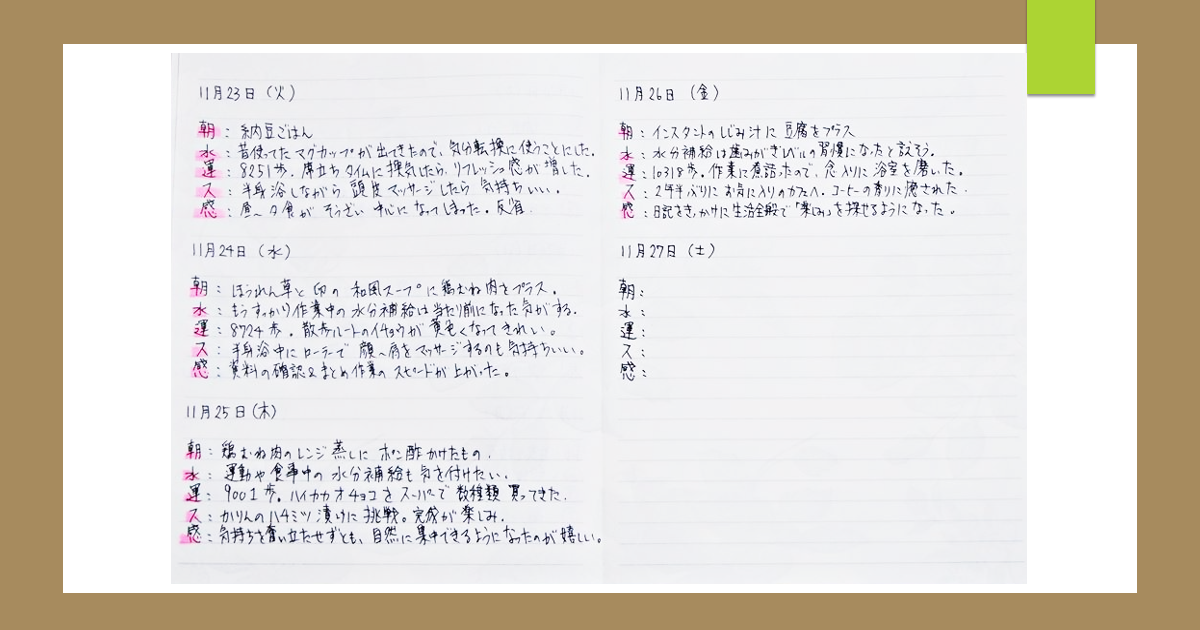 11月23日（火）
朝：納豆ごはん
水：昔使ってたマグカップが出てきたので、気分転換に使うことにした。
運：8251歩。席立ちタイムに換気したら、リフレッシュ感が増した。
ス：半身浴しながら頭皮マッサージしたら気持ちいい。
感：昼～夕食がそうざい中心になってしまった。反省.
11月24日（水）
朝：ほうれん草と卵の和風スープに鶏むね肉をプラス。
水：もうすっかり作業中の水分補給は当たり前になった気がする.
運：8724歩。散歩ルートのイチョウが黄色くなってきれい。
ス：半身浴中にローラーで顔～肩をマッサージするのも気持ちいい。
感：資料の確認&まとめ作業のスピードが上がった。
11月25日（木）
朝：鶏むね肉のレンジ蒸しにポン酢かけたもの.
水：運動や食事中の水分補給も気を付けたい.
運：9001歩。ハイカカオチョコをスーパーで数種類買ってきた.
ス：かりんのハチミツ漬けに挑戦。完成が楽しみ.
感：気持ちを奮い立たせずとも、自然に集中できるようになったのが嬉しい。
11月26日（金）
朝：インスタントのしじみ汁に豆腐をプラス
水：水分補給は歯みがきレベルの習慣になったと言えそう.
運：10318歩。作業に煮詰ったので、念入りに浴室を磨いた。
ス：2年半ぶりにお気に入りのカフェへ.コーヒーの香りに癒された.
感：日記をきっかけに生活全般で「楽しみ」を探せるようになった。
11月27日（土）
朝：
水：
運：
ス：
感：